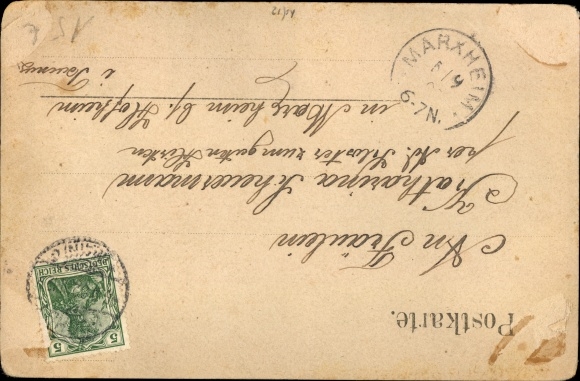 Postkarte.
An Fräulein
Katharina Scheuermann
per Ad. Kloster zum guten Hirten
in Marxheim b/ Hofheim
i Taunus
5
DEUTSCHES REICH
MARXHEIM
6-7N.